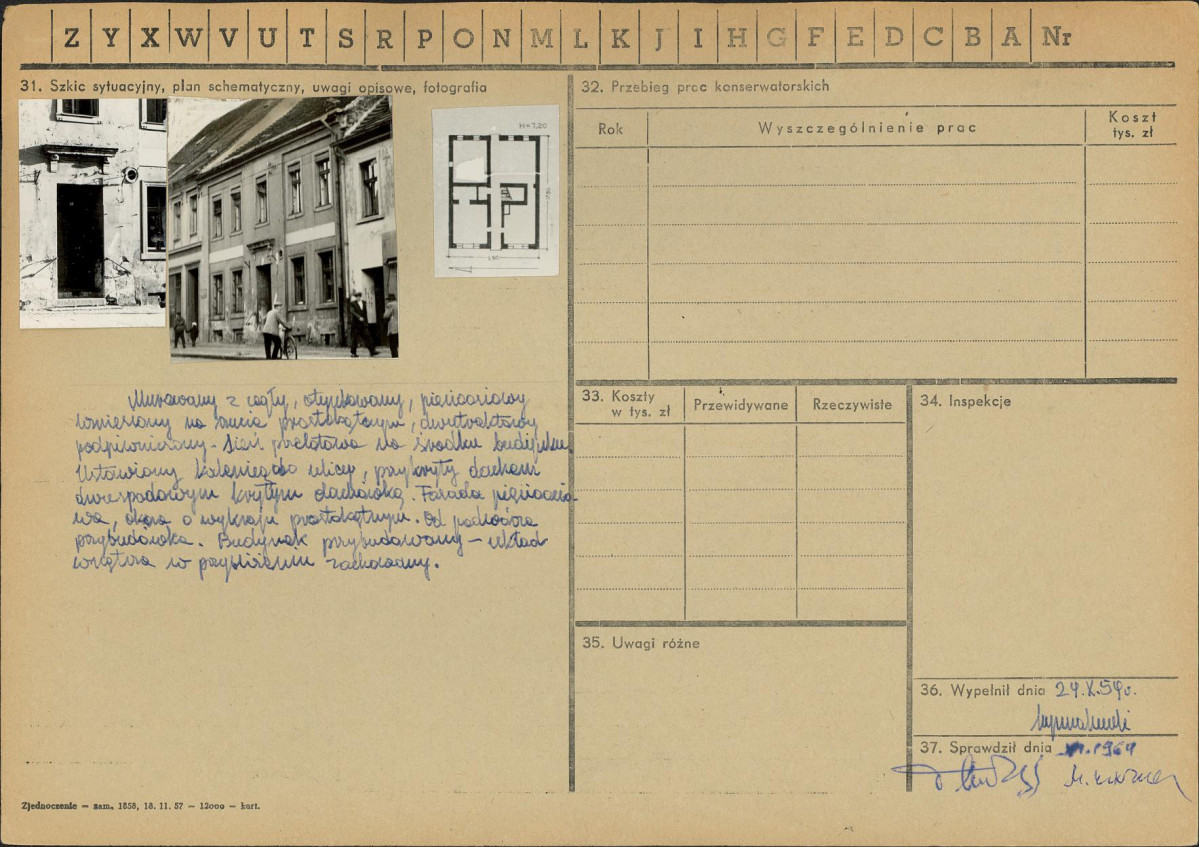 Z Y X W V U T S R P O N M L K J I H G F E D C B A Nr
31. Szkic sytuacyjny, plan schematyczny, uwagi opisowe, fotografia
H=7,20
Murowany z cegły, otynkowany, pięcioosiowy
wzniesiony na rzucie prostokątnym, dwutraktowy
podpiwniczony. Sień przelotowa na środku budynku.
Ustawiony kalenicą do ulicy, przykryty dachem
dwuspadowym krytym dachówką. Fasada pięcioosio-
wa, okna o wykroju prostokątnym. Od podwórza
przybudówka. Budynek przybudowany - układ
wnętrza w przybliżeniu zachowany.
Zjednoczenie — zam. 1858, 18. 11. 57 — 12000 — kart.
32. Przebieg prac konserwatorskich
Rok
Wyszczególnienie prac
Koszt
tys. zł
33. Koszty
w tys. zł
Przewidywane
Rzeczywiste
34. Inspekcje
35. Uwagi różne
36. Wypełnił dnia 24.X.59r.
37. Sprawdził dnia 1964